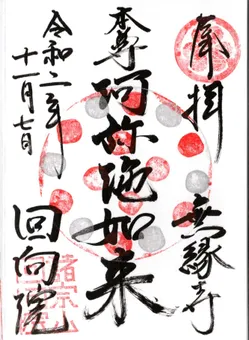 奉拝
無縁寺
本尊 阿弥陀如来
令和二年
十一月七日
回向院